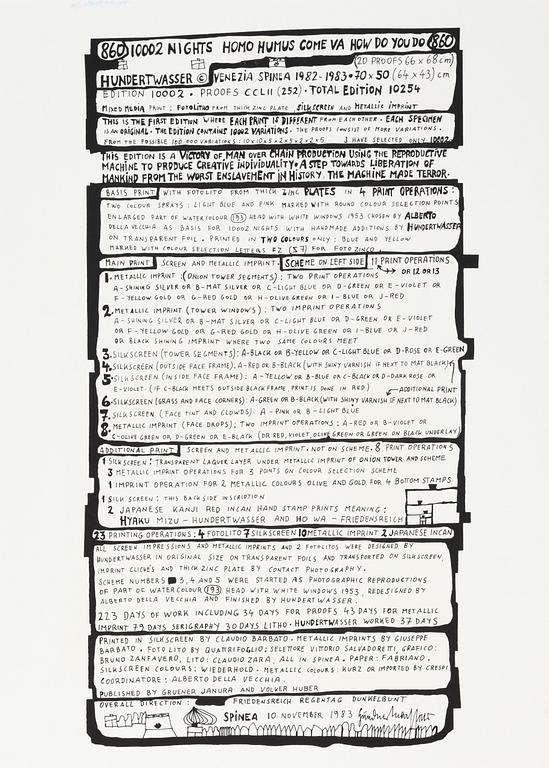 860 10002 NIGHTS HOMO HUMUS COME VA HOW DO YOU DO 860
(20 PROOFS 66 x 68 cm)
HUNDERTWASSER © VENEZIA SPINEA 1982-1983 • 70 x 50 (64 x 43) cm
EDITION 10002 • PROOFS CCLII (252) • TOTAL EDITION 10254
MIXED MEDIA PRINT: FOTOLITO FROM THICK ZINC PLATE, SILKSCREEN AND METALLIC IMPRINT
THIS IS THE FIRST EDITION WHERE EACH PRINT IS DIFFERENT FROM EACH OTHER. EACH SPECIMEN
IS AN ORIGINAL. THE EDITION CONTAINS 10002 VARIATIONS. THE PROOFS CONSIST OF MORE VARIATIONS.
FROM THE POSSIBLE 100 000 VARIATIONS: I HAVE SELECTED ONLY 10002
THIS EDITION IS A VICTORY OF MAN OVER CHAIN PRODUCTION USING THE REPRODUCTIVE
MACHINE TO PRODUCE CREATIVE INDIVIDUALITY • A STEP TOWARDS LIBERATION OF
MANKIND FROM THE WORST ENSLAVEMENT IN HISTORY. THE MACHINE MADE TERROR.
BASIS PRINT WITH FOTOLITO FROM THICK ZINC PLATES IN 4 PRINT OPERATIONS:
TWO COLOUR SPRAYS: LIGHT BLUE AND PINK MARKED WITH ROUND COLOUR SELECTION POINTS
ENLARGED PART OF WATERCOLOUR 193 HEAD WITH WHITE WINDOWS 1953 CHOSEN BY ALBERTO
DELLA VECCHIA AS BASIS FOR 10002 NIGHTS WITH HANDMADE ADDITIONS BY HUNDERTWASSER
ON TRANSPARENT FOIL. PRINTED IN TWO COLOURS ONLY: BLUE AND YELLOW
MARKED WITH COLOUR SELECTION LETTERS FZ (57) FOR FOTO ZINCO
MAIN PRINT SCREEN AND METALLIC IMPRINT. SCHEME ON LEFT SIDE 11 PRINT OPERATIONS
OR 12 OR 13
1. METALLIC IMPRINT: (ONION TOWER SEGMENTS): TWO PRINT OPERATIONS
A-SHINING SILVER OR B-MAT SILVER OR C-LIGHT BLUE OR D-GREEN OR E-VIOLET
OR F-YELLOW GOLD OR G-RED GOLD OR H-OLIVE GREEN OR I-BLUE OR J-RED
2. METALLIC IMPRINT (TOWER WINDOWS): TWO IMPRINT OPERATIONS
A-SHINING SILVER OR B-MAT SILVER OR C-LIGHT BLUE OR D-GREEN OR E-VIOLET
OR F-YELLOW GOLD OR G-RED GOLD OR H-OLIVE GREEN OR I-BLUE OR J-RED
OR BLACK SHINING IMPRINT WHERE TWO SAME COLOURS MEET
3. SILKSCREEN (TOWER SEGMENTS): A-BLACK OR B-YELLOW OR C-LIGHT BLUE OR D-ROSE OR E-GREEN
4. SILKSCREEN (OUTSIDE FACE FRAME): A-RED OR B-BLACK (WITH SHINY VARNISH IF NEXT TO MAT BLACK)
5. SILKSCREEN (INSIDE FACE FRAME): A-YELLOW OR B-BLUE OR C-BLACK OR D-DARK ROSE OR
E-VIOLET. (IF C-BLACK MEETS OUTSIDE BLACK FRAME, PRINT IS DONE IN RED) ADDITIONAL PRINT
6. SILKSCREEN (GRASS AND FACE CORNERS): A-GREEN OR B-BLACK (WITH SHINY VARNISH IF NEXT TO MAT BLACK)
7. SILKSCREEN (FACE TINT AND CLOWDS): A-PINK OR B-LIGHT BLUE
8. METALLIC IMPRINT (FACE DROPS); TWO IMPRINT OPERATIONS; A-RED OR B-VIOLET OR
C-OLIVE GREEN OR D-GREEN OR E-BLACK (OR RED, VIOLET, OLIVE GREEN OR GREEN ON BLACK UNDERLAY)
ADDITIONAL PRINT SCREEN AND METALLIC IMPRINT. NOT ON SCHEME. 8 PRINT OPERATIONS
1 SILKSCREEN: TRANSPARENT LAQUER LAYER UNDER METALLIC IMPRINT OF ONION TOWER AND SCHEME
3 METALLIC IMPRINT OPERATIONS FOR 3 POINTS ON COLOUR SELECTION SCHEME
1 IMPRINT OPERATION FOR 2 METALLIC COLOURS OLIVE AND GOLD FOR 4 BOTTOM STAMPS
1 SILKSCREEN: THIS BACKSIDE INSCRIPTION
2 JAPANESE KANJI RED INCAN HAND STAMP PRINTS MEANING:
HYAKU MIZU - HUNDERTWASSER AND HO WA - FRIEDENSREICH
23 PRINTING OPERATIONS: 4 FOTOLITO 7 SILKSCREEN 10 METALLIC IMPRINT 2 JAPANESE INCAN
ALL SCREEN IMPRESSIONS AND METALLIC IMPRINTS AND 2 FOTOLITOS WERE DESIGNED BY
HUNDERTWASSER IN ORIGINAL SIZE ON TRANSPARENT FOILS AND TRANSPORTED ON SILKSCREEN,
IMPRINT CLICHÉS AND THICK ZINC PLATE BY CONTACT PHOTOGRAPHY.
SCHEME NUMBERS 3, 4 AND 5 WERE STARTED AS PHOTOGRAPHIC REPRODUCTIONS
OF PART OF WATERCOLOUR 193 HEAD WITH WHITE WINDOWS 1953, REDESIGNED BY
ALBERTO DELLA VECCHIA AND FINISHED BY HUNDERTWASSER.
223 DAYS OF WORK INCLUDING 34 DAYS FOR PROOFS 43 DAYS FOR METALLIC
IMPRINT 79 DAYS SERIGRAPHY 30 DAYS LITHO • HUNDERTWASSER WORKED 37 DAYS
PRINTED IN SILKSCREEN BY CLAUDIO BARBATO. METALLIC IMPRINTS BY GIUSEPPE
BARBATO. FOTO LITO BY QUATTRIFOGLIO: SELETTORE VITTORIO SALVADORETTI, GRAFICO:
BRUNO ZANFAVERO, LITO: CLAUDIO ZARA, ALL IN SPINEA. PAPER: FABRIANO.
SILKSCREEN COLOURS: WIEDERHOLD. METALLIC COLOURS: KURZ OR IMPORTED BY CRESPI
COORDINATORE: ALBERTO DELLA VECCHIA.
PUBLISHED BY GRUENER JANURA AND VOLKER HUBER
OVERALL DIRECTION: FRIEDENSREICH REGENTAG DUNKELBUNT
SPINEA 10 NOVEMBER 1983 Hundertwasser